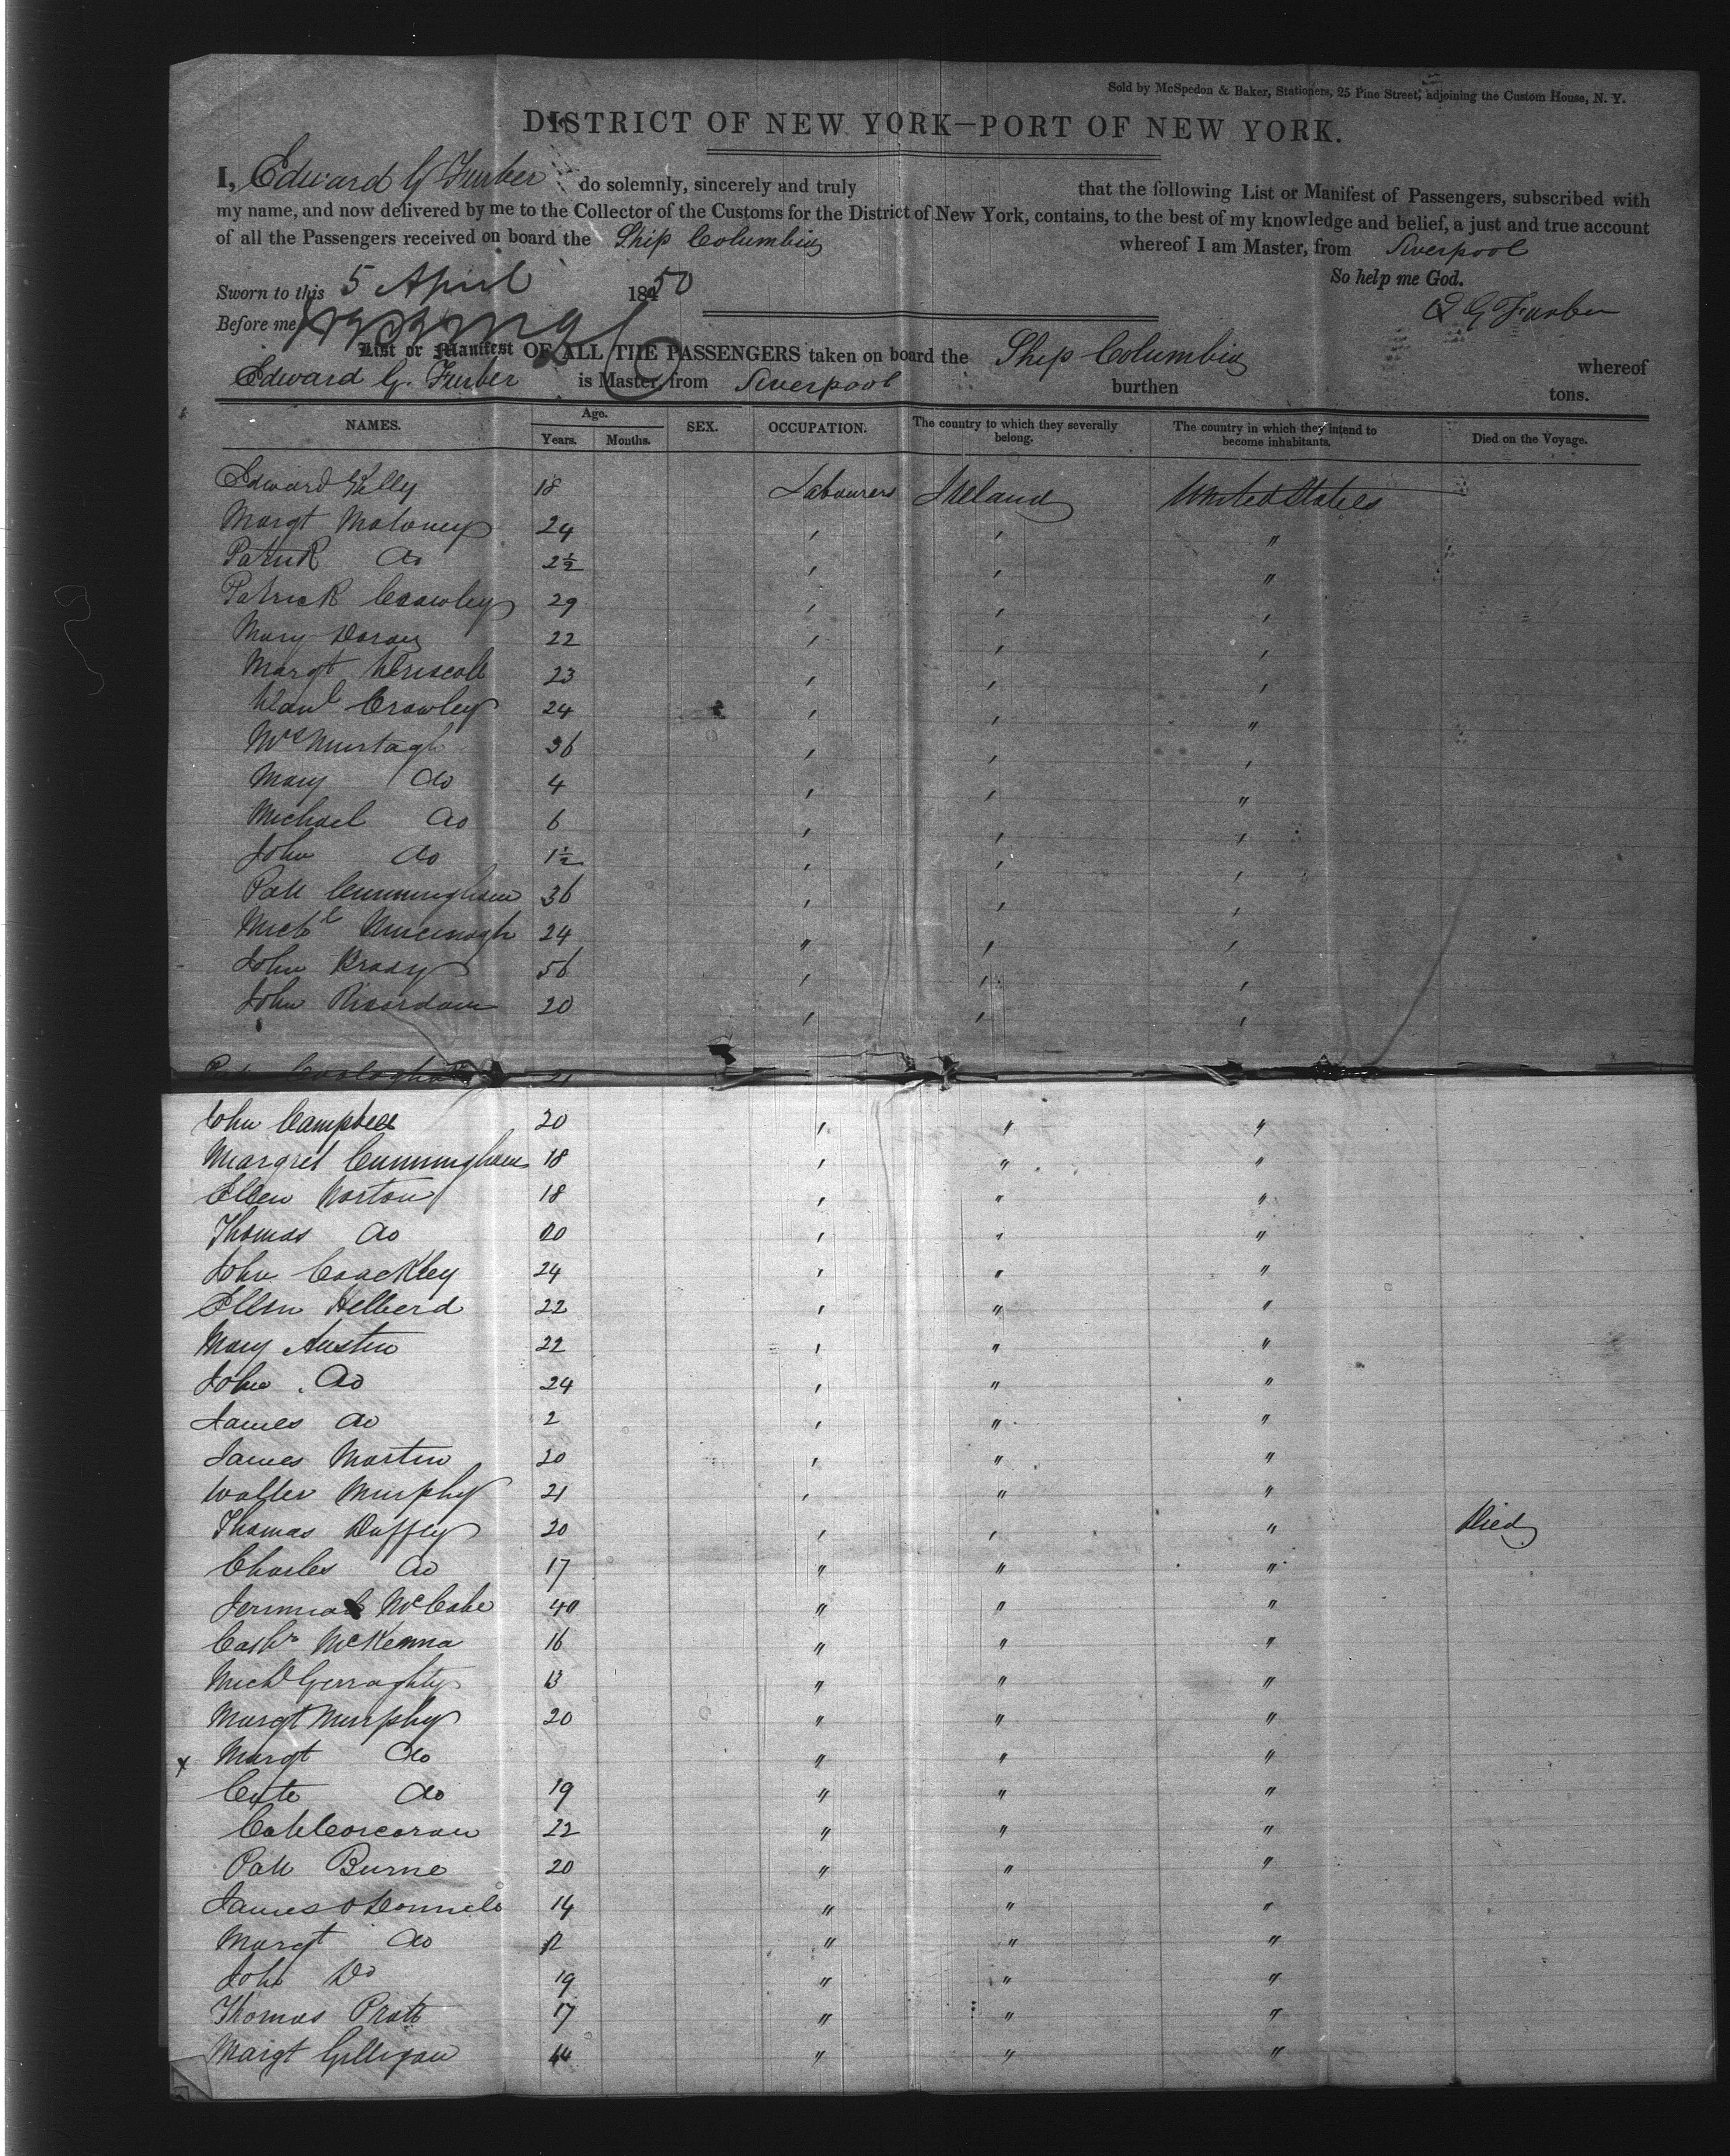 Sold by McSpedon & Baker, Stationers, 25 Pine Street, adjoining the Custom House, N. Y.
DISTRICT OF NEW YORK—PORT OF NEW YORK.
I, Edward G Furber do solemnly, sincerely and truly that the following List or Manifest of Passengers, subscribed with
my name, and now delivered by me to the Collector of the Customs for the District of New York, contains, to the best of my knowledge and belief, a just and true account
of all the Passengers received on board the Ship Columbia whereof I am Master, from Liverpool
So help me God.
Sworn to this 5 April 1850
E G Furber
Before me
List or Manifest OF ALL THE PASSENGERS taken on board the Ship Columbia whereof
Edward G. Furber is Master, from Liverpool burthen tons.
NAMES. Age. Years. Months. SEX. OCCUPATION. The country to which they severally belong. The country in which they intend to become inhabitants. Died on the Voyage.
Edward Kelly 18 Labourers Ireland United States
Margt Maloney 24 " " "
Patrick do 2½ " " "
Patrick Crowley 29 " " "
Mary Doran 22 " " "
Margt Driscoll 23 " " "
Danl Crowley 24 " " "
Mrs Murtagh 36 " " "
Mary do 4 " " "
Michael do 6 " " "
John do 1½ " " "
Patt Cunningham 36 " " "
Michl 24 " " "
John Brady 56 " " "
John Rioordan 20 " " "
21
John Campbell 20 " " "
Margret Cunningham 18 " " "
Ellen Norton 18 " " "
Thomas do 20 " " "
John Coackley 24 " " "
Ellen Helberd 22 " " "
Mary Austin 22 " " "
John do 24 " " "
James do 2 " " "
James Martin 20 " " "
Walter Murphy 21 " " "
Thomas Duffey 20 " " " Died
Charles do 17 " " "
Jermiah McCabe 40 " " "
Cathr McKenna 16 " " "
Michl Gerraghty 13 " " "
Margt Murphy 20 " " "
x Margt do " " "
Cate do 19 " " "
Cath Corcoran 22 " " "
Patt Burne 20 " " "
James O Donnell 14 " " "
Margt do 12 " " "
John Do 19 " " "
Thomas Pratt 17 " " "
Margt Gilligan 44 " " "